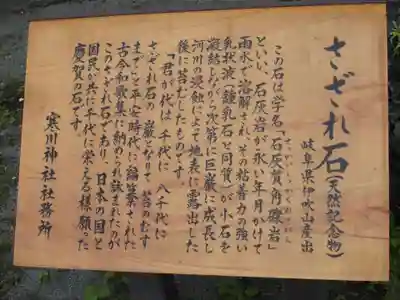 さざれ石(天然記念物)
岐阜県伊吹山産出
この石は学名「石灰質角礫岩」
せっかいしつかくれきがん
といい、石灰岩が永い年月かけて
雨水で溶解され、その粘着力の強い
乳状液(鍾乳石と同質)が小石を
凝結しながら次第に巨巌に成長し
河川の浸蝕によって地表に露出した
後に苔むしたものです。
「君が代は 千代に 八千代に
さざれ石の 巌となりて 苔のむす
まで」と平安時代に編纂された
古今和歌集に納められ詠まれたのが
このさざれ石であり、日本の国と
国民が共に千代に栄える様願った
慶賀の石です。
寒川神社社務所